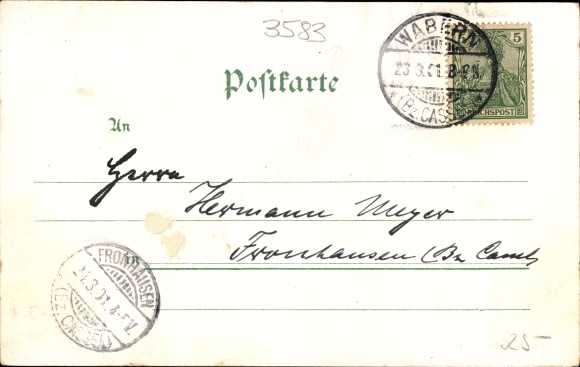 3583
WABERN
23.3.01.8-9V.
*(Bz.CASSEL)*
5
REICHSPOST
Postkarte
An
Herrn
Hermann Meyer
in
Fronhausen (Bz Cassel)
FRONHAUSEN
(BZ. CASSEL)
25-